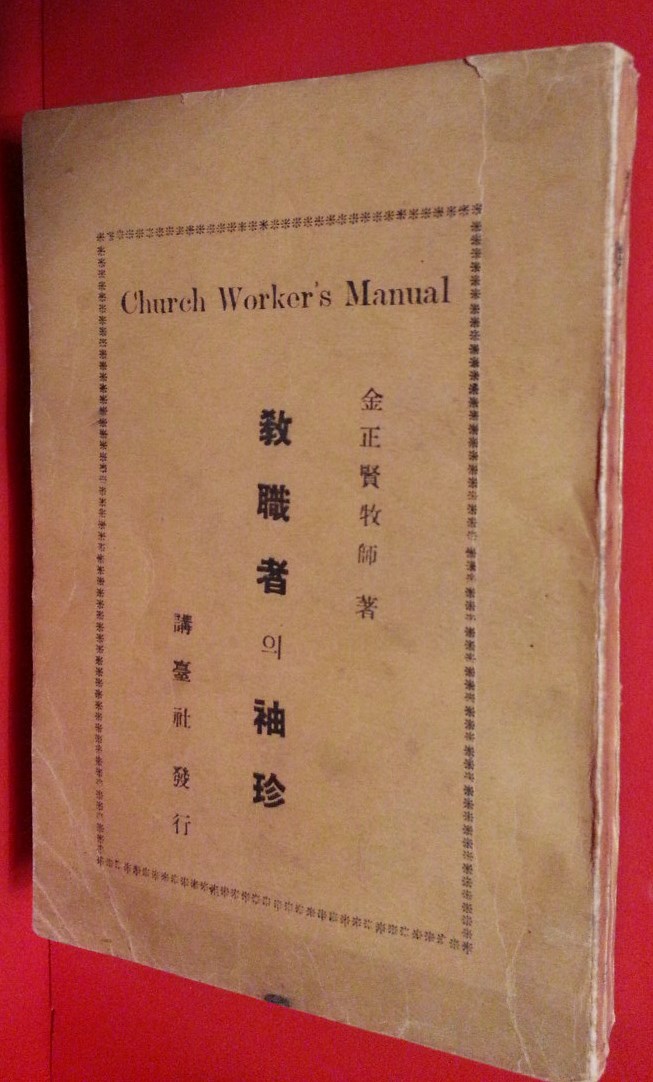 Church Worker's Manual
金正賢牧師 著
教職者의袖珍
講臺社 發行